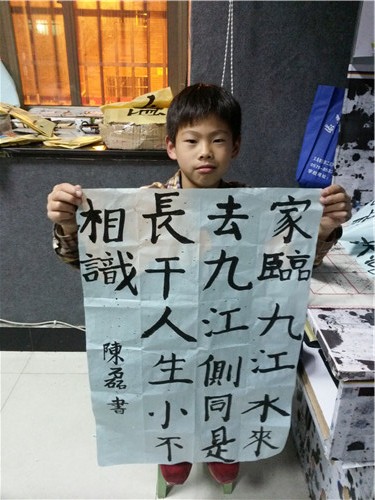 家臨九江水來
去九江側同是
長干人生小不
相識
陳磊書